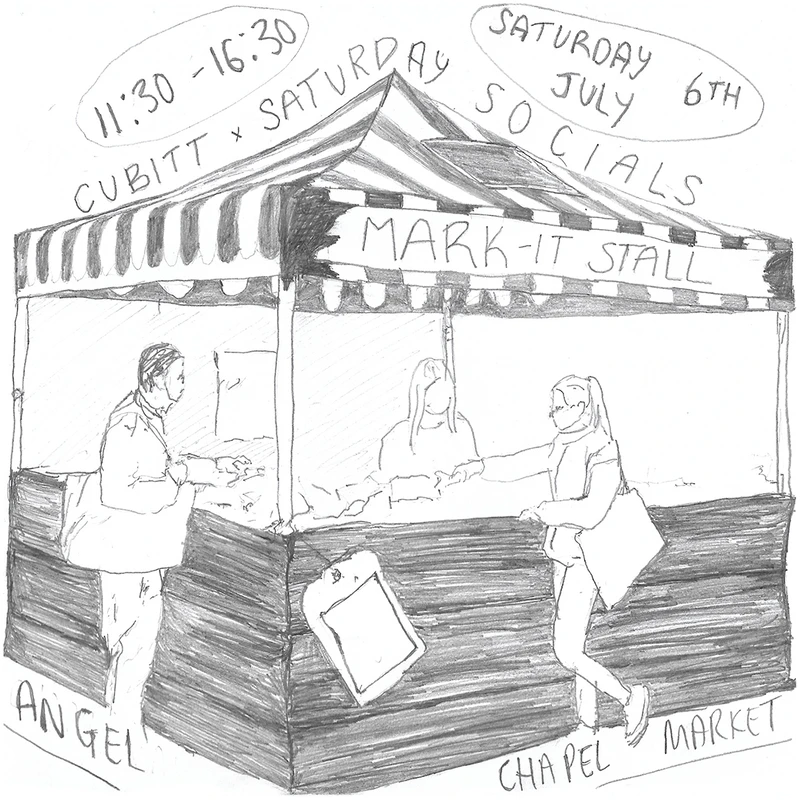 11:30 - 16:30
SATURDAY
JULY 6TH
CUBITT x SATURDAY SOCIALS
MARK-IT STALL
ANGEL
CHAPEL MARKET